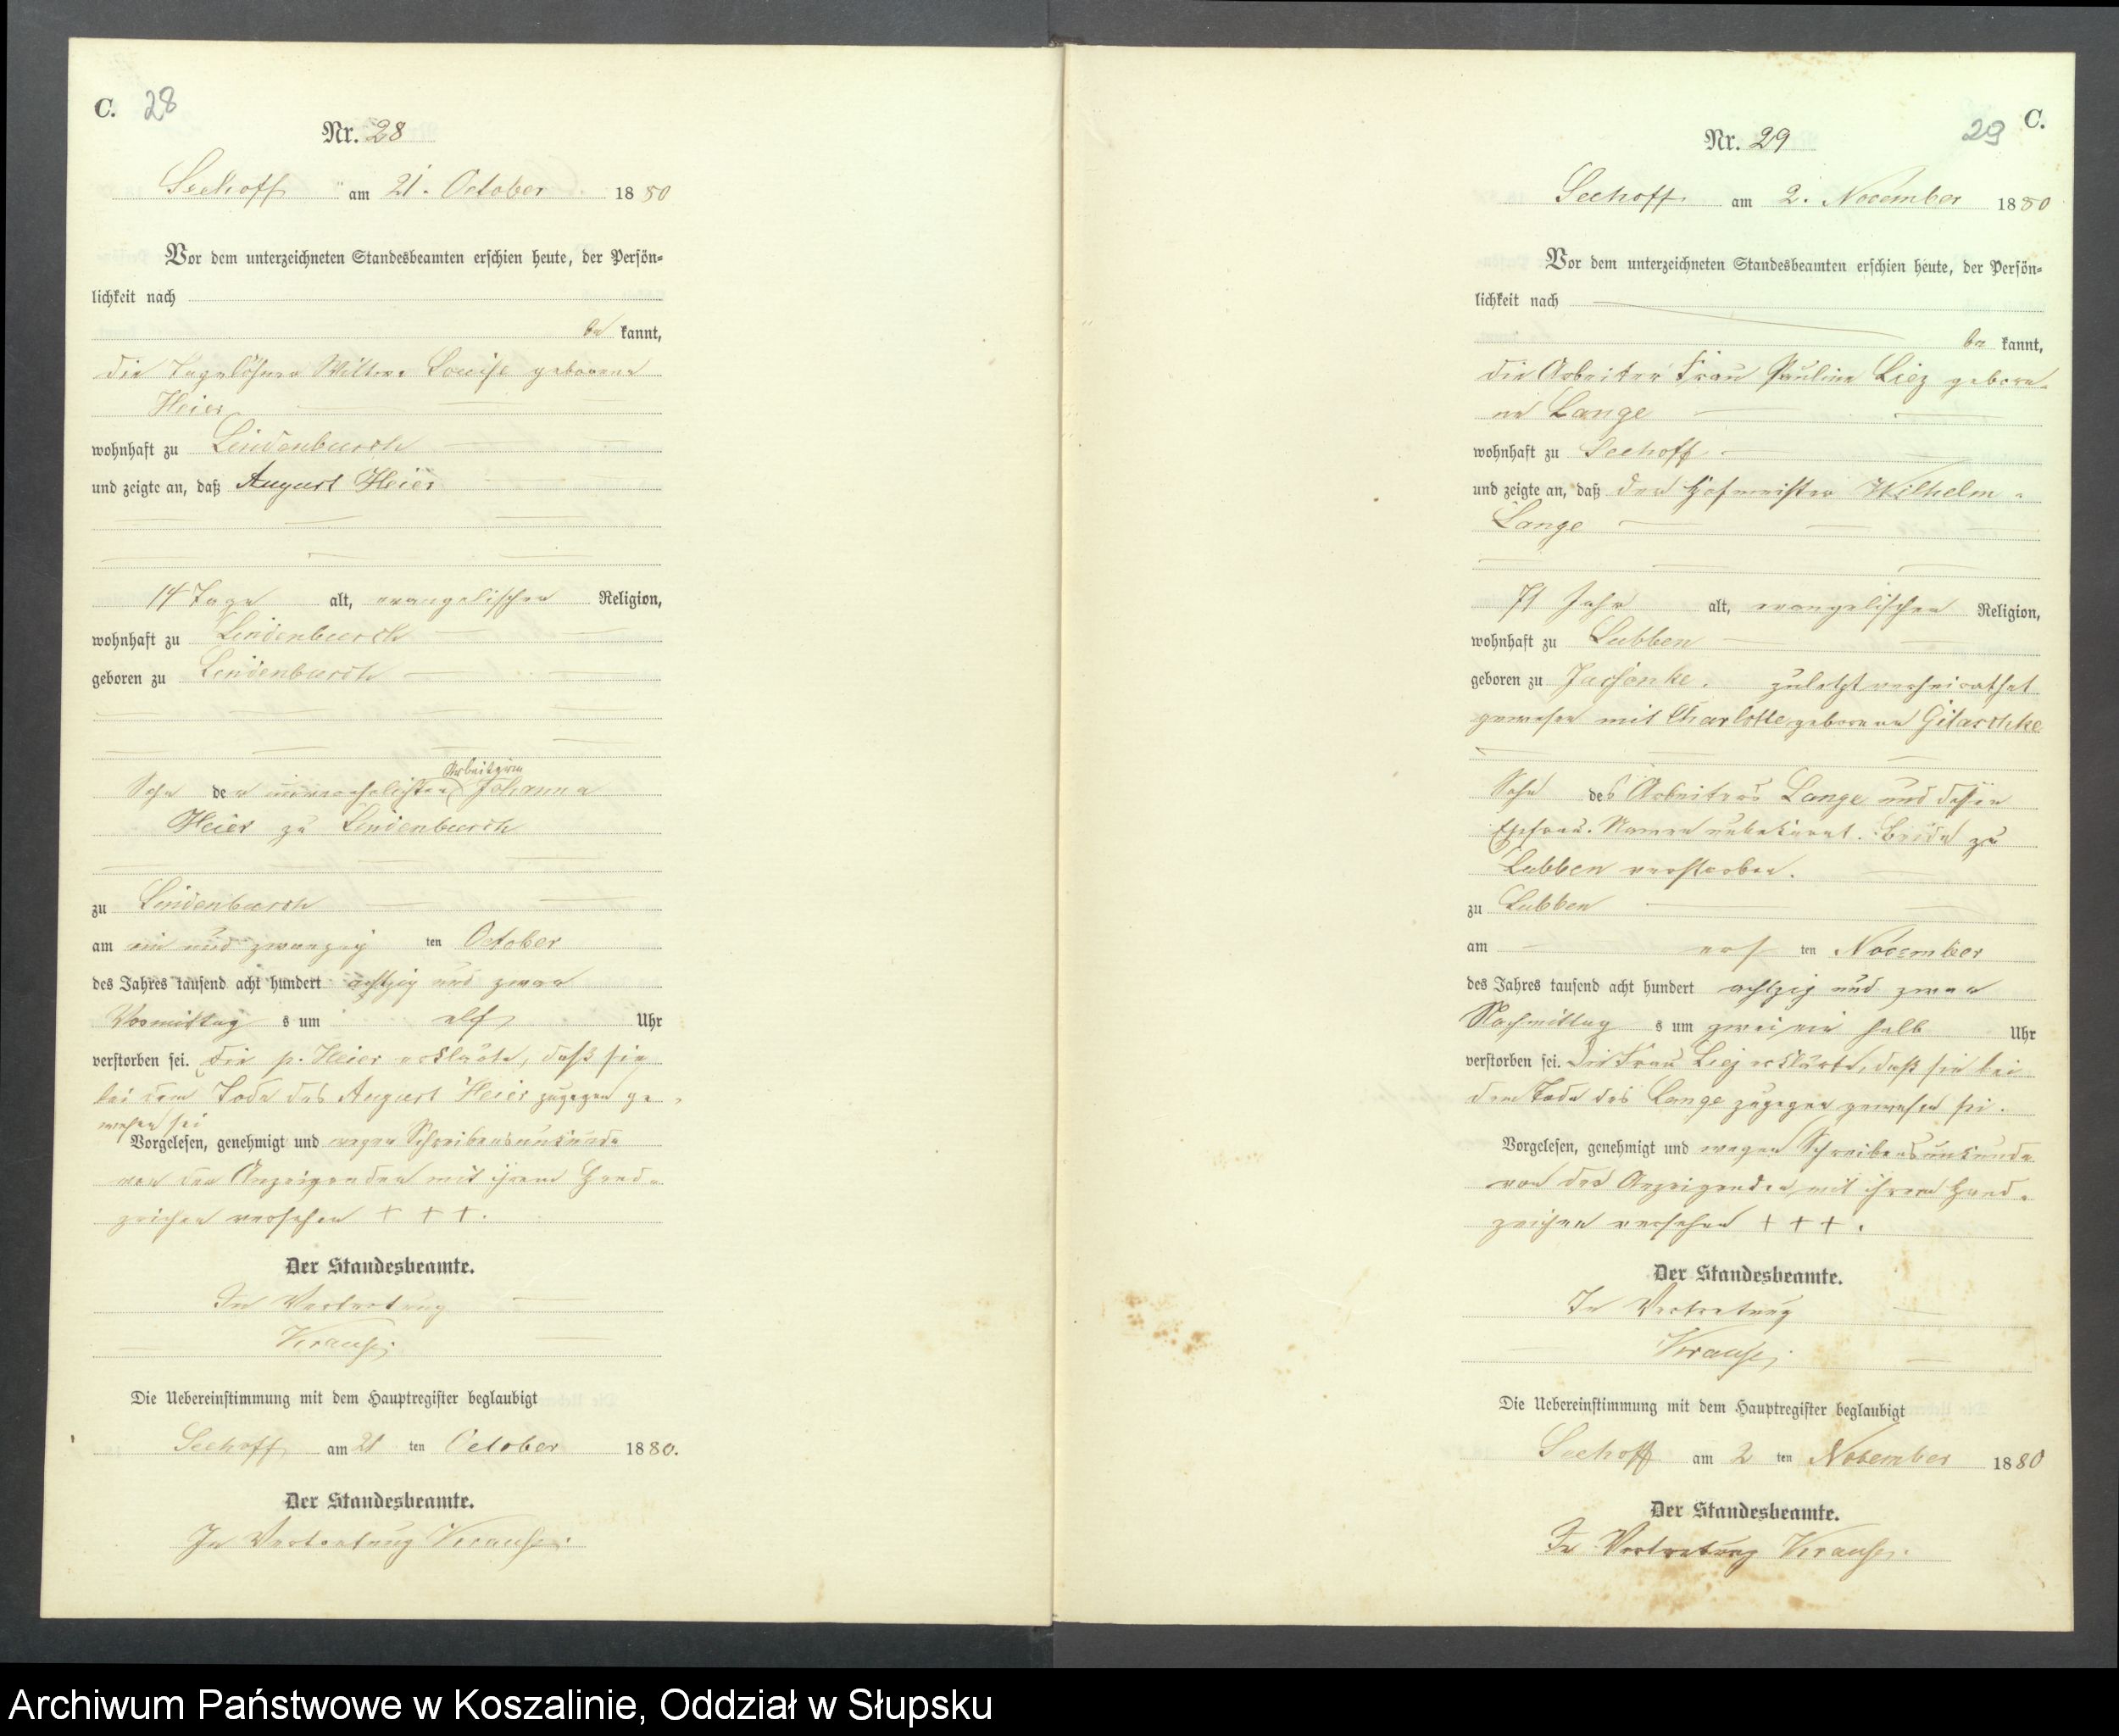 C. 28
Nr. 28
Seehoff am 21. October 1880
Vor dem unterzeichneten Standesbeamten erschien heute, der Persön=
lichkeit nach
be kannt,
die Tagelöhner Wittwe Louise geborene
Heier
wohnhaft zu Lindenbusch
und zeigte an, daß August Heier
14 Tage alt, evangelischer Religion,
wohnhaft zu Lindenbusch
geboren zu Lindenbusch
Arbeiterin
Sohn der unverehelichten Johanna
Heier zu Lindenbusch
zu Lindenbusch
am ein und zwanzig ten October
des Jahres tausend acht hundert achtzig und zwar
Vormittag s um elf Uhr
verstorben sei. Die p. Heier erklärte, daß sie
bei dem Tode des August Heier zugegen ge
wesen sei
Vorgelesen, genehmigt und wegen Schreibensunkunde
von der Anzeigenden mit ihrem Hand-
zeichen versehen + + +.
Der Standesbeamte.
In Vertretung
Krause
Die Uebereinstimmung mit dem Hauptregister beglaubigt
Seehoff am 21 ten October 1880.
Der Standesbeamte.
In Vertretung Krause.
C.
29
Nr. 29
Seehoff am 2. November 1880
Vor dem unterzeichneten Standesbeamten erschien heute, der Persön=
lichkeit nach
be kannt,
die Arbeiter Frau Pauline Liez gebore-
ne Lange
wohnhaft zu Seehoff
und zeigte an, daß der Hofmeister Wilhelm
Lange
71 Jahr alt, evangelischer Religion,
wohnhaft zu Lubben
geboren zu zuletzt verheirathet
gewesen mit Charlotte geborene Gitaschke
Sohn des Arbeiters Lange und dessen
Ehefrau. Namen unbekannt. Beide zu
Lubben verstorben.
zu Lubben
am ers ten November
des Jahres tausend acht hundert achtzig und zwar
Nachmittag s um zwei ein halb Uhr
verstorben sei. Die Frau Liez erklärte, daß sie bei
dem Tode des Lange zugegen gewesen sei.
Vorgelesen, genehmigt und wegen Schreibensunkunde
von der Anzeigenden mit ihrem Hand-
zeichen versehen + + +.
Der Standesbeamte.
In Vertretung
Krause
Die Uebereinstimmung mit dem Hauptregister beglaubigt
Seehoff am 2 ten November 1880
Der Standesbeamte.
In Vertretung Krause.
Archiwum Państwowe w Koszalinie, Oddział w Słupsku